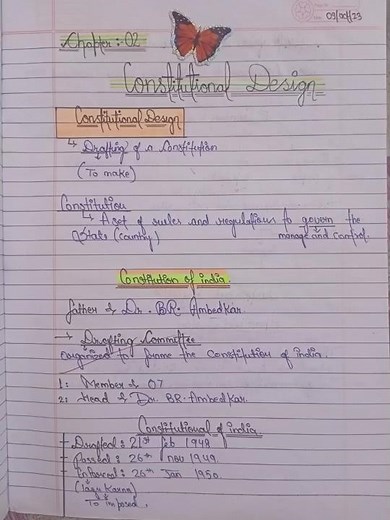 03/04/23
Chapter :- 02
Constitutional Design
Constitutional Design
↳ Drafting of a Constitution
(To make)
Constitution
↳ A set of rules and regulations to govern the
State (country) manage and control.
Constitution of india
father : Dr. B.R. Ambedkar.
→ Drafting Committee
organised to frame the Constitution of india.
1: Member : 07
2: Head : Dr. BR. Ambedkar.
Constitutional of india
Drafted : 21st feb 1948
Passed : 26th nov 1949
Enforced : 26th Jan 1950.
(lagu karna)
To imposed.